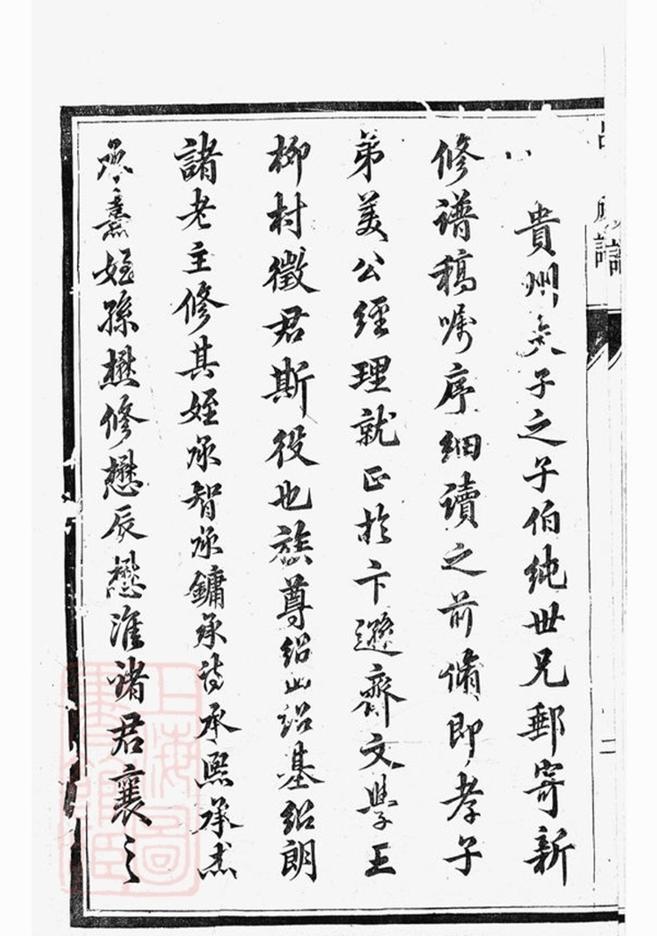 貴州矣子之子伯純世兄郵寄新
修譜稿囑序細讀之前脩即孝子
弟美公經理就正於卞遜齋文學王
柳村徵君斯役也族尊紹幽紹基紹朗
諸老主修其姪承智承鏞承詩承熙承杰
承熹姪孫懋修懋辰懋淮諸君襄之
譜
二
上海圖